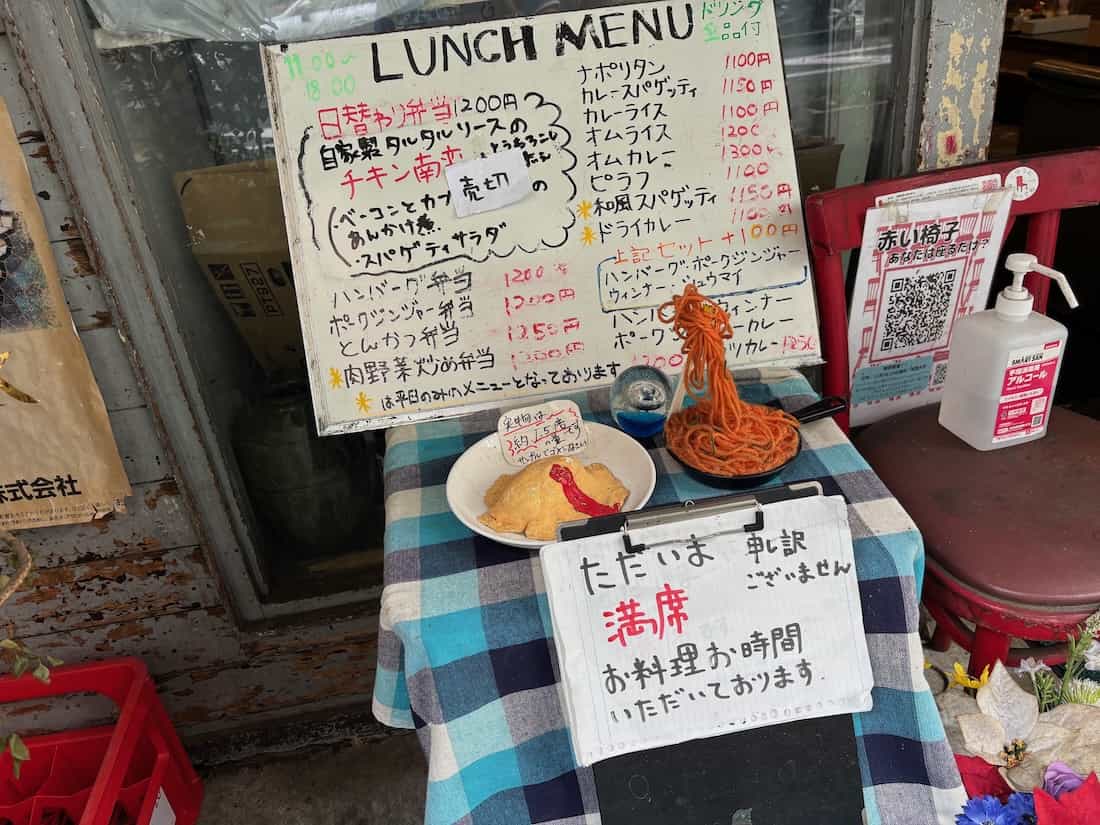 LUNCH MENU
11:00〜
18:00
ドリンク
全品付
日替わり弁当 1200円
自家製タルタルソースの
チキン南蛮
売切
ベーコンとカブ の
あんかけ煮
スパゲティサラダ
ハンバーグ弁当 1200円
ポークジンジャー弁当 1200円
とんかつ弁当 1250円
*肉野菜炒め弁当 1200円
*は平日のみのメニューとなっております
ナポリタン 1100円
カレースパゲッティ 1150円
カレーライス 1100円
オムライス 1200
オムカレー 1300
ピラフ 1100
*和風スパゲッティ 1150円
*ドライカレー 1100
上記セット +100円
ハンバーグ・ポークジンジャー
ウィンナー・シュウマイ
ウィンナー
カレー
ツカレー 1250
実物は
約1.5倍
の量です
サンプルでゴメンなさい
ただいま 申し訳
ございません
満席
お料理お時間
いただいております.
赤い椅子
あなたは座るだけ?
SMART SAN
アルコール
株式会社